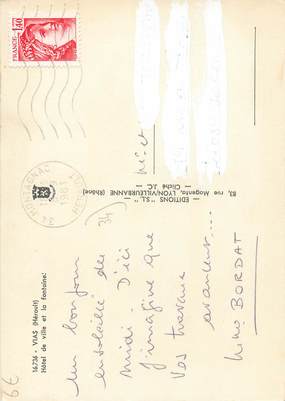 FRANCE
1,40
34 MONTAGNAC
1981
HERAULT
EDITIONS "S.L."
83, rue Magenta, LYON/VILLEURBANNE (Rhône)
Cliché J.C.
16.736 - VIAS (Hérault)
Hôtel de ville et la fontaine.
34
un bonjour
ensoleillé des
midi - D'ici
j'imagine que
vos travaux
avancent....
BORDAT
6€